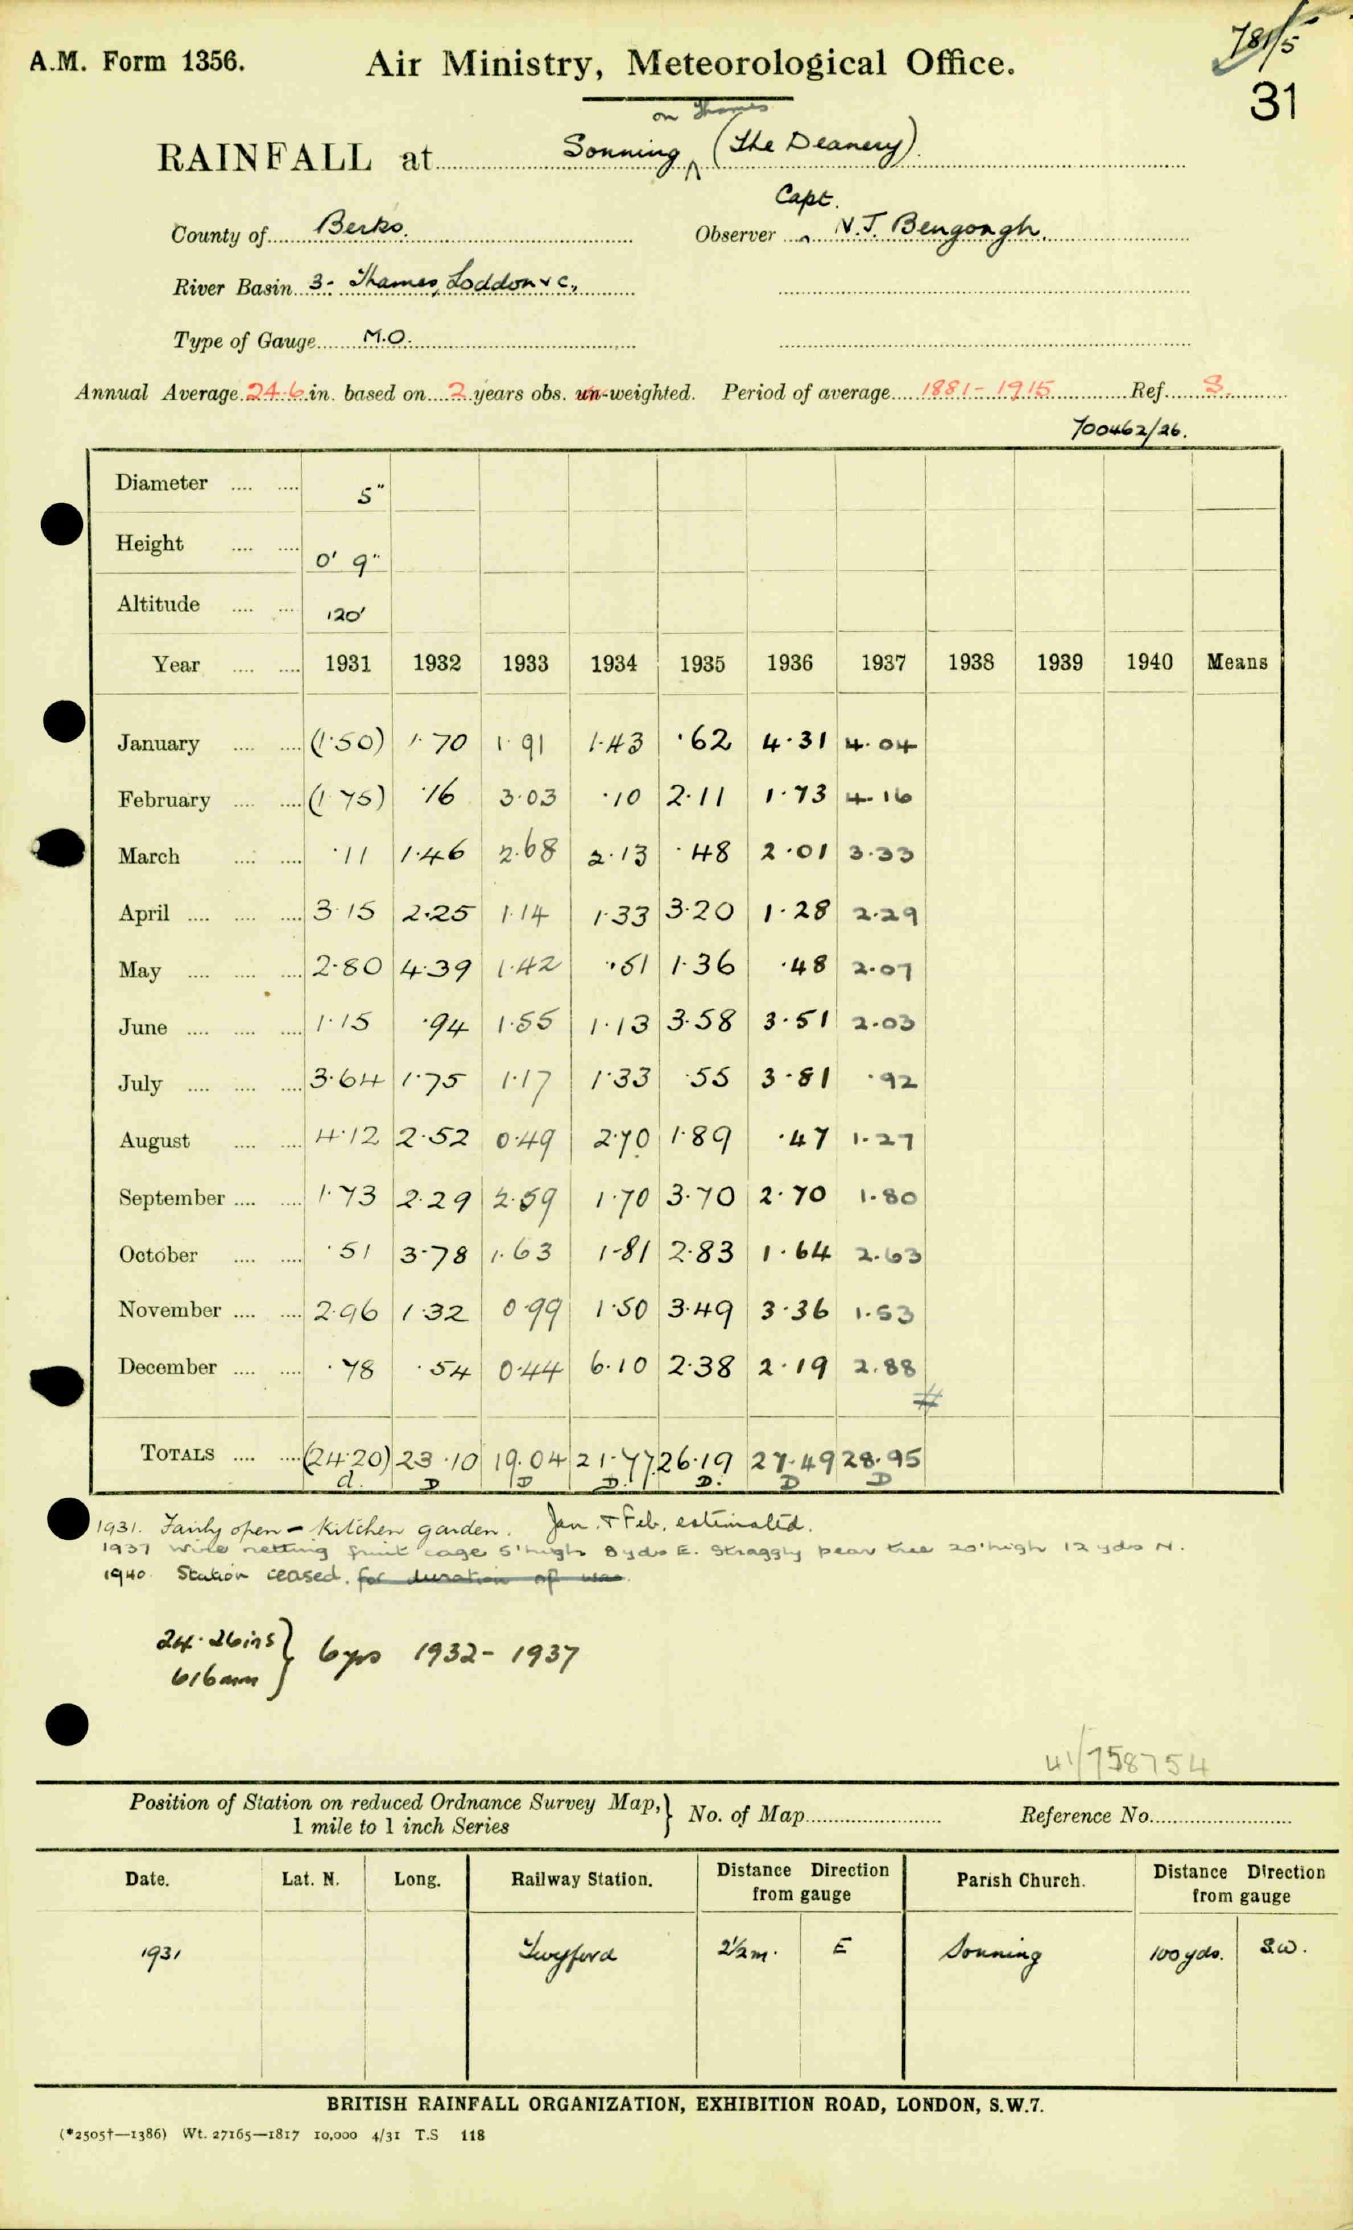 781/5
A.M. Form 1356. Air Ministry, Meteorological Office.
31
on Thames
RAINFALL at Sonning ^ (The Deanery)
Capt.
County of Berks. Observer N.J. Bengough.
River Basin 3- Thames, Loddon & c.,
Type of Gauge M.O.
Annual Average 24.6 in. based on 2 years obs. un-weighted. Period of average 1881-1915 Ref. S.
700462/26.
Diameter .... .... 5"
Height .... .... 0' 9"
Altitude .... .... 120'
Year .... .... 1931 1932 1933 1934 1935 1936 1937 1938 1939 1940 Means
January .... .... (1.50) 1.70 1.91 1.43 .62 4.31 4.04
February .... .... (1.75) .16 3.03 .10 2.11 1.73 4.16
March .... .... .11 1.46 2.68 2.13 .48 2.01 3.33
April .... .... .... 3.15 2.25 1.14 1.33 3.20 1.28 2.29
May .... .... .... 2.80 4.39 1.42 .51 1.36 .48 2.07
June .... .... .... 1.15 .94 1.55 1.13 3.58 3.51 2.03
July .... .... .... 3.64 1.75 1.17 1.33 .55 3.81 .92
August .... .... 4.12 2.52 0.49 2.70 1.89 .47 1.27
September .... .... 1.73 2.29 2.59 1.70 3.70 2.70 1.80
October .... .... .51 3.78 1.63 1.81 2.83 1.64 2.63
November .... .... 2.96 1.32 0.99 1.50 3.49 3.36 1.53
December .... .... .78 .54 0.44 6.10 2.38 2.19 2.88
#
TOTALS .... .... (24.20) 23.10 19.04 21.77 26.19 27.49 28.95
d. D D D. D. D D
1931. Fairly open - kitchen garden. Jan. & Feb. estimated.
1937 wire netting fruit cage 5' high 8 yds E. Straggly pear tree 20' high 12 yds N.
1940. Station ceased. for duration of war.
24.26 ins } 6 yrs 1932-1937
616 mm
41/758754
Position of Station on reduced Ordnance Survey Map, } No. of Map Reference No.
1 mile to 1 inch Series
Date. Lat. N. Long. Railway Station. Distance Direction from gauge Parish Church. Distance Direction from gauge
1931 Twyford 2½m. E Sonning 100 yds. S.W.
BRITISH RAINFALL ORGANIZATION, EXHIBITION ROAD, LONDON, S.W.7.
(*2505†—1386) Wt. 27165—1817 10,000 4/31 T.S 118